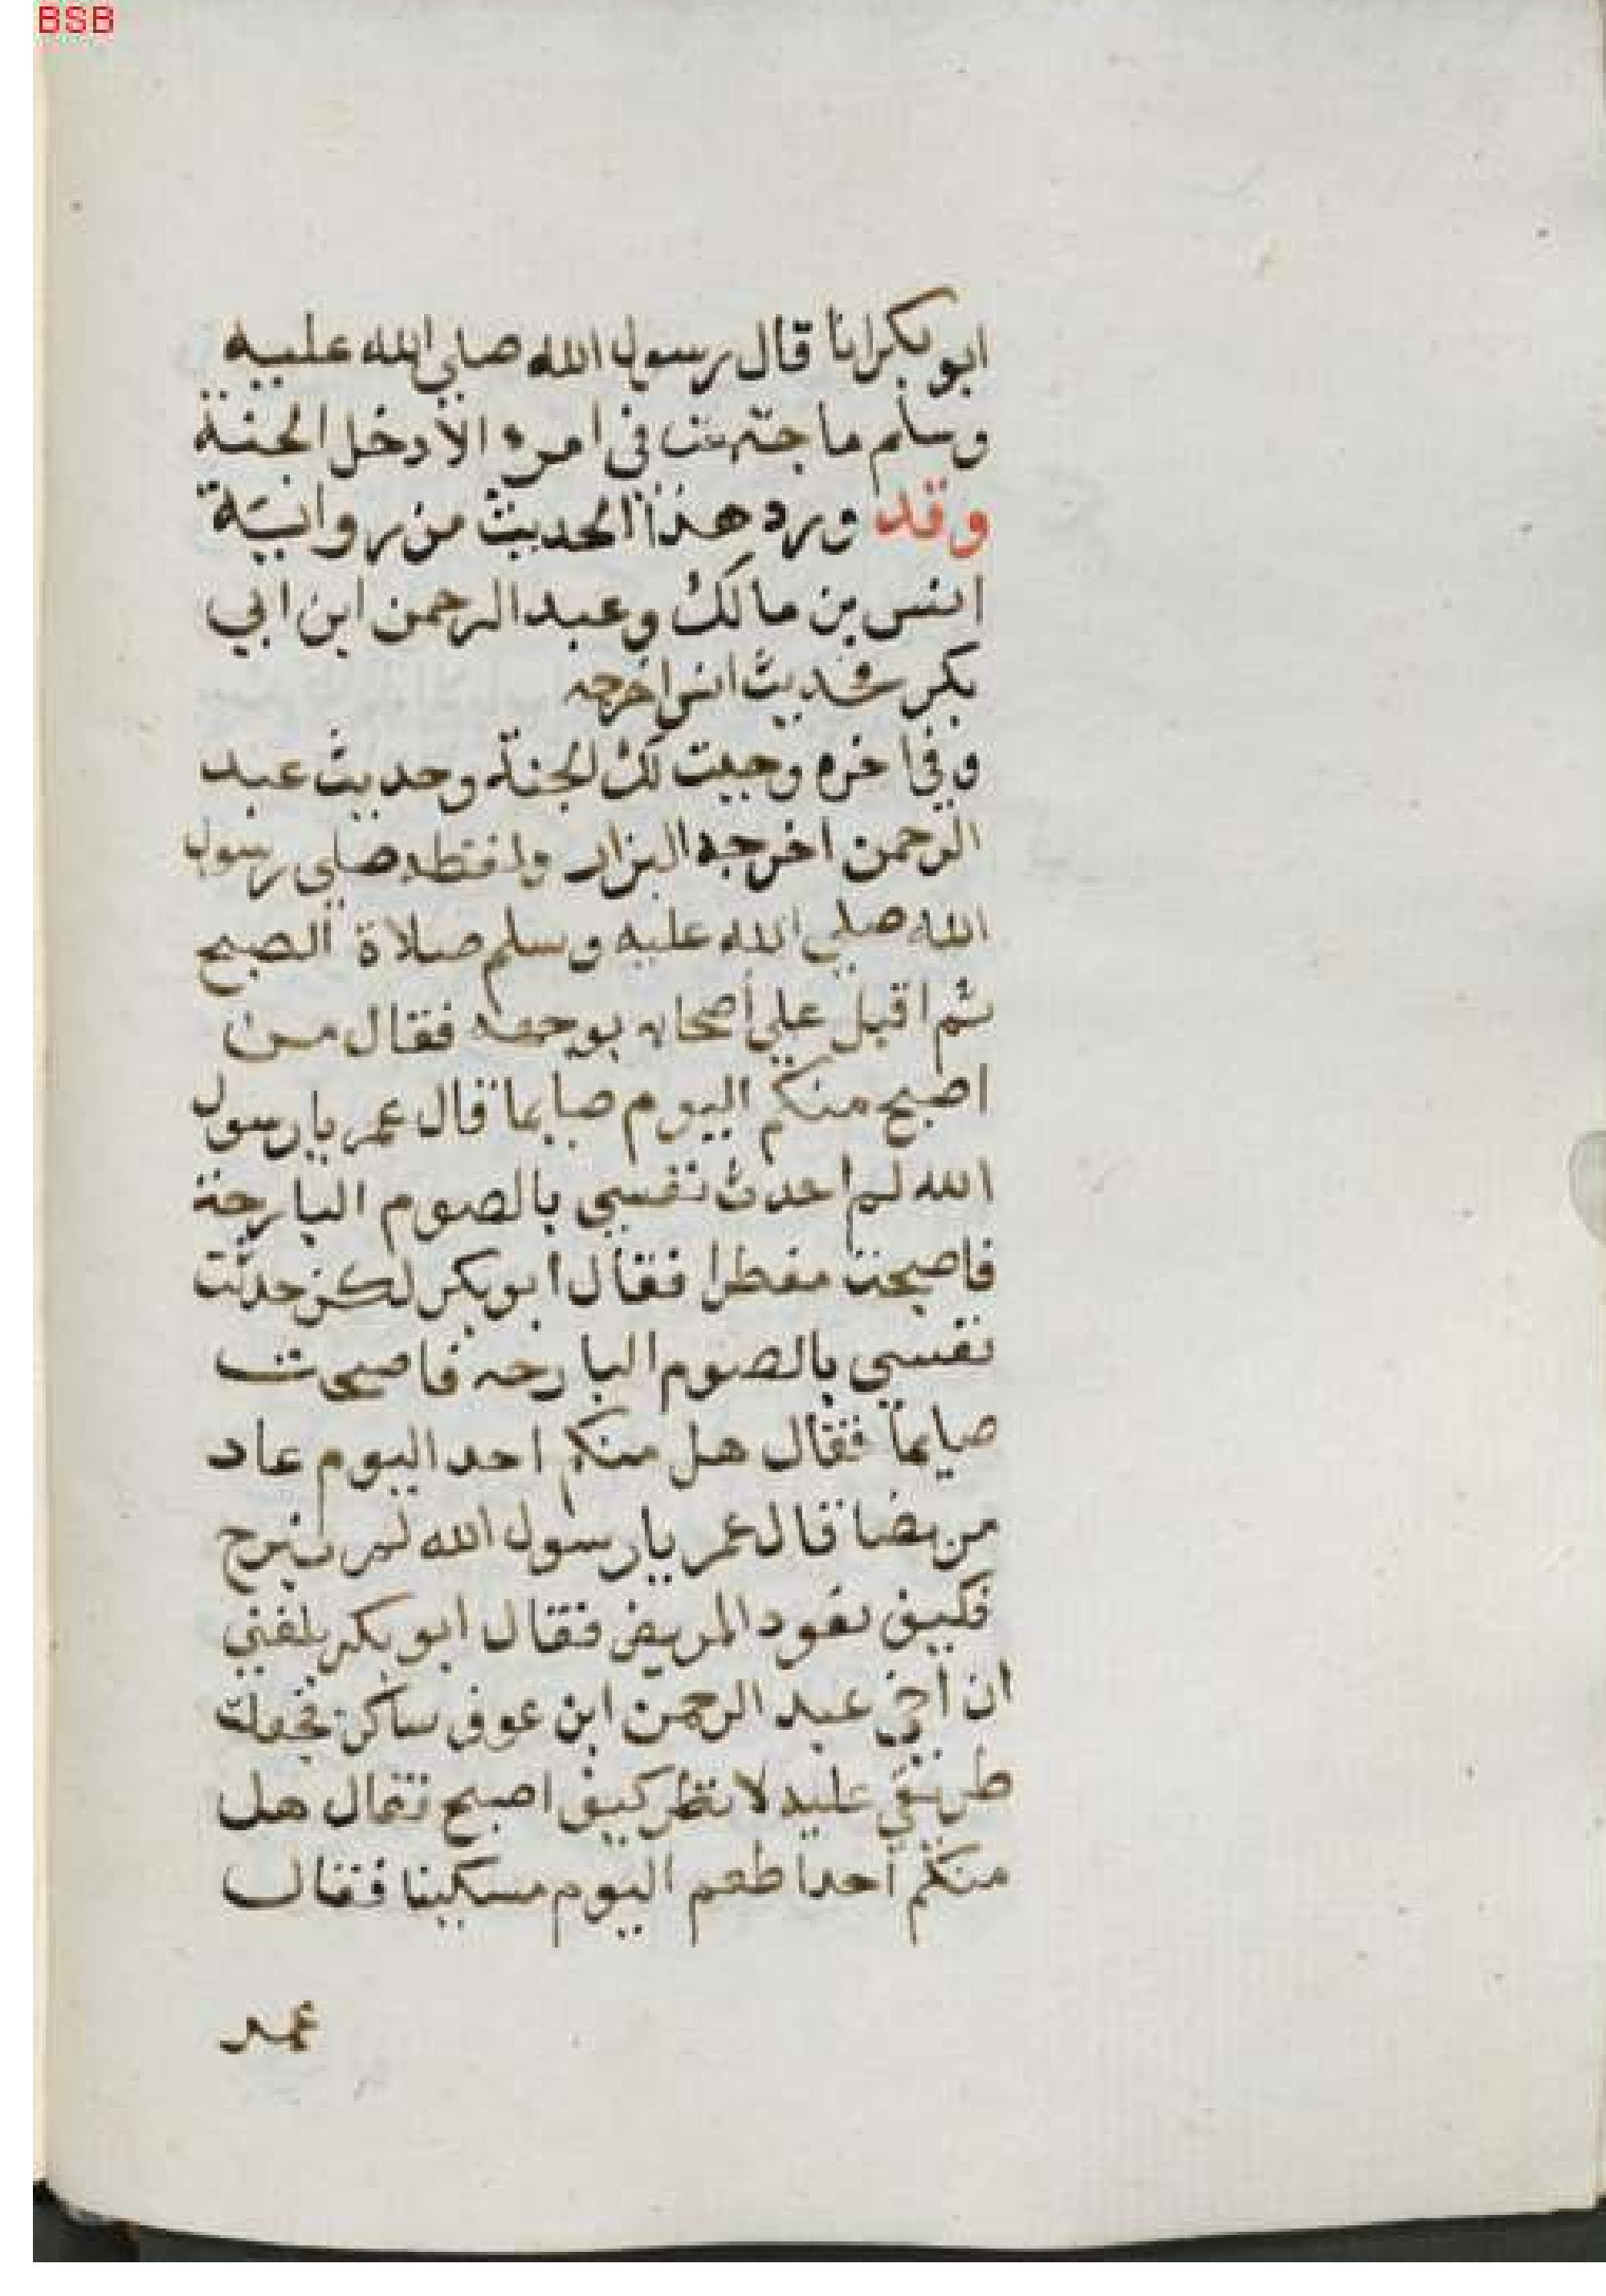 BSB
ابو بكر انا قال رسول الله صلي الله عليه
وسلم ما اجتمعت في امرء الادخل الجنة
وقد ورد هذا الحديث من رواية
انس بن مالك وعبد الرحمن ابن ابي
بكر فحديث انس اخرجه
وفي اخره وجبت لك الجنة وحديث عبد
الرحمن اخرجه البزار ولفظه صلي رسول
الله صلي الله عليه وسلم صلاة الصبح
ثم اقبل علي أصحابه بوجهه فقال من
اصبح منكم اليوم صايما قال عمر يا رسول
الله لم احدث نفسي بالصوم البارحة
فاصبحت مفطرا فقال ابو بكر لكن حدثت
نفسي بالصوم البارحه فاصبحت
صايما فقال هل منكم احد اليوم عاد
مريضا قال عمر يا رسول الله لم نبرح
فكيف نعود المريض فقال ابو بكر بلغني
ان أخي عبد الرحمن ابن عوف شاكن فجعلت
طريقي عليه لانظر كيف اصبح فقال هل
منكم أحدا طعم اليوم مسكينا فقال
عمر